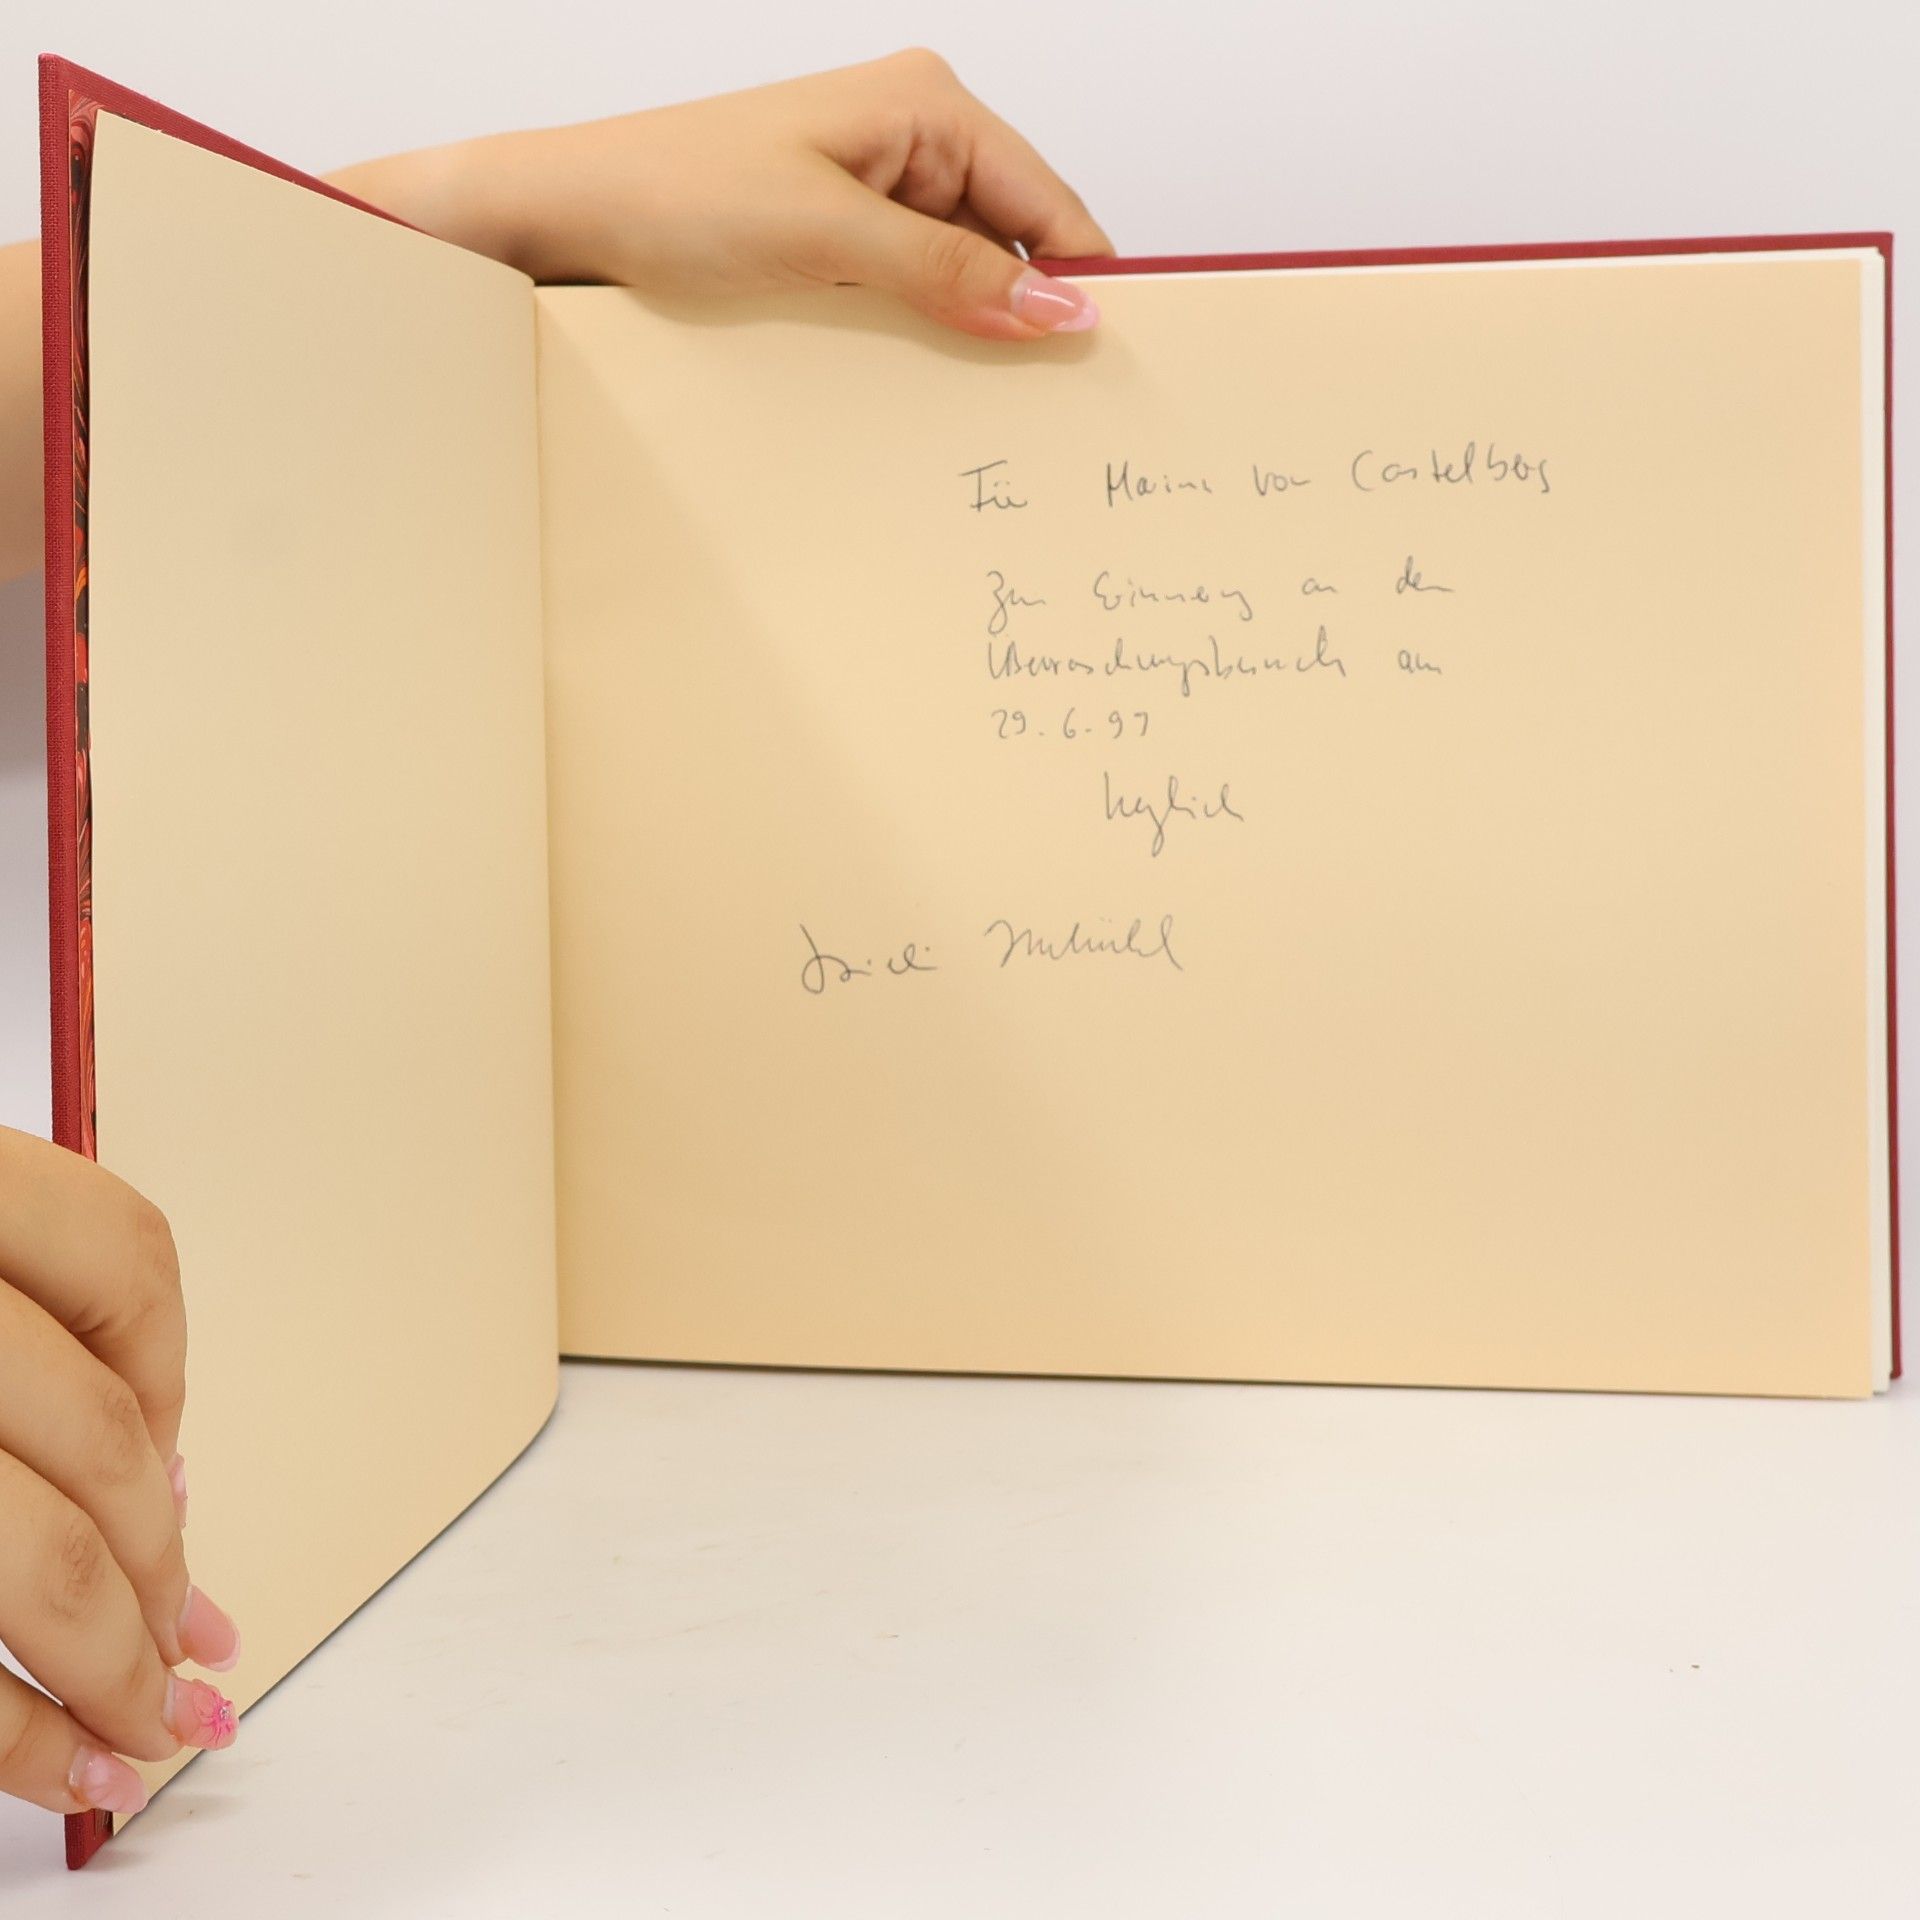 Für Marina von Castelberg
Zur Erinnerung an den
Überraschungsbesuch am
29.6.97
herzlich